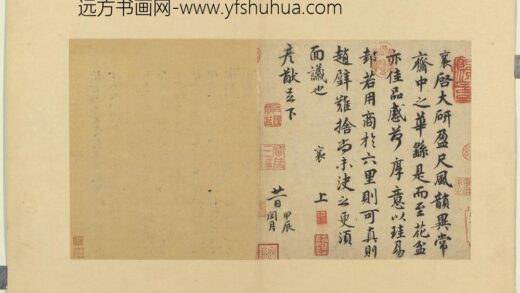 远方书画网-www.yfshuhua.com
襄啓大研盈尺風韻異常
齋中之華繇是而至花盆
亦佳品感荷厚意以珪易
邽若用商於六里則可真則
趙璧難捨尚未決之更須
面議也 襄 上
彥猷足下
廿一日 甲辰閏月